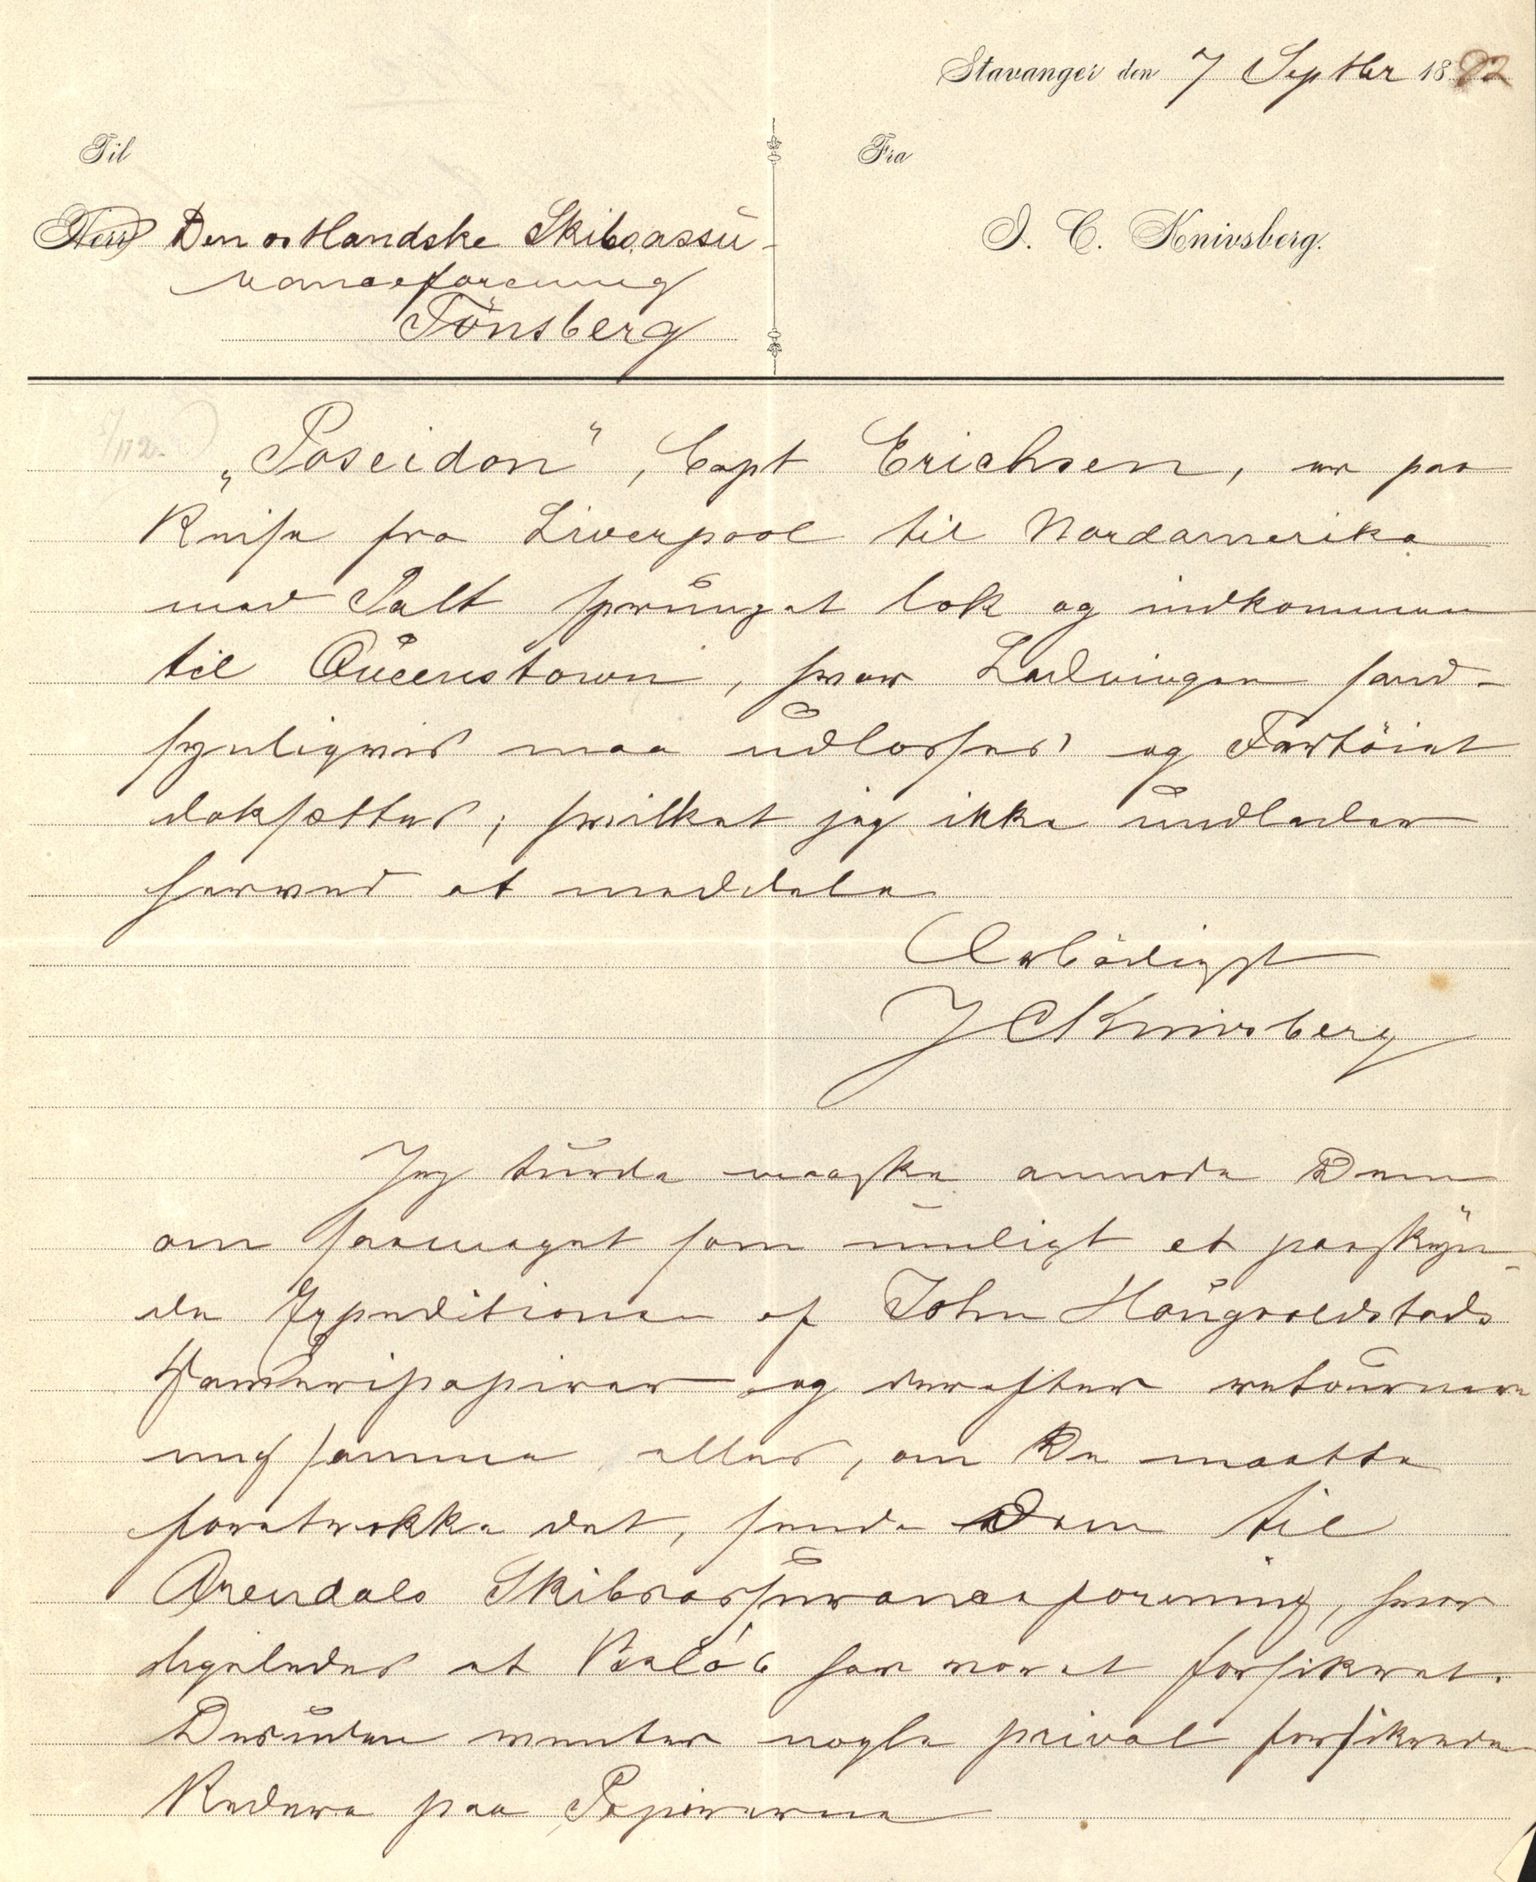 Stavanger den 7 Septbr 1882
Til
Fra
Herr Den østlandske Skibsassu-
ranceforening
Tönsberg
J. C. Knivsberg.
„Poseidon", Capt Erichsen, er paa
Reise fra Liverpool til Nordamerika
med Salt sprunget læk og indkommen
til Queenstown, hvor Ladningen sand-
synligvis maa udlosses og Fartöiet
doksættes; hvilket jeg ikke undlader
herved at meddele
Ærbödigst
J C Knivsberg
Jeg turde maaske anmode Dem
om saameget som muligt at paaskyn-
de Expeditionen af John Haugvaldstads
Havaripapirer og derefter retournere
mig samme eller, om De maatte
foretrække det, sende Dem til
Arendals Skibsassuranceforening, hvor
ligeledes et Belöb har været forsikret.
Desuden venter nogle privat forsikrede
Redere paa Papirerne